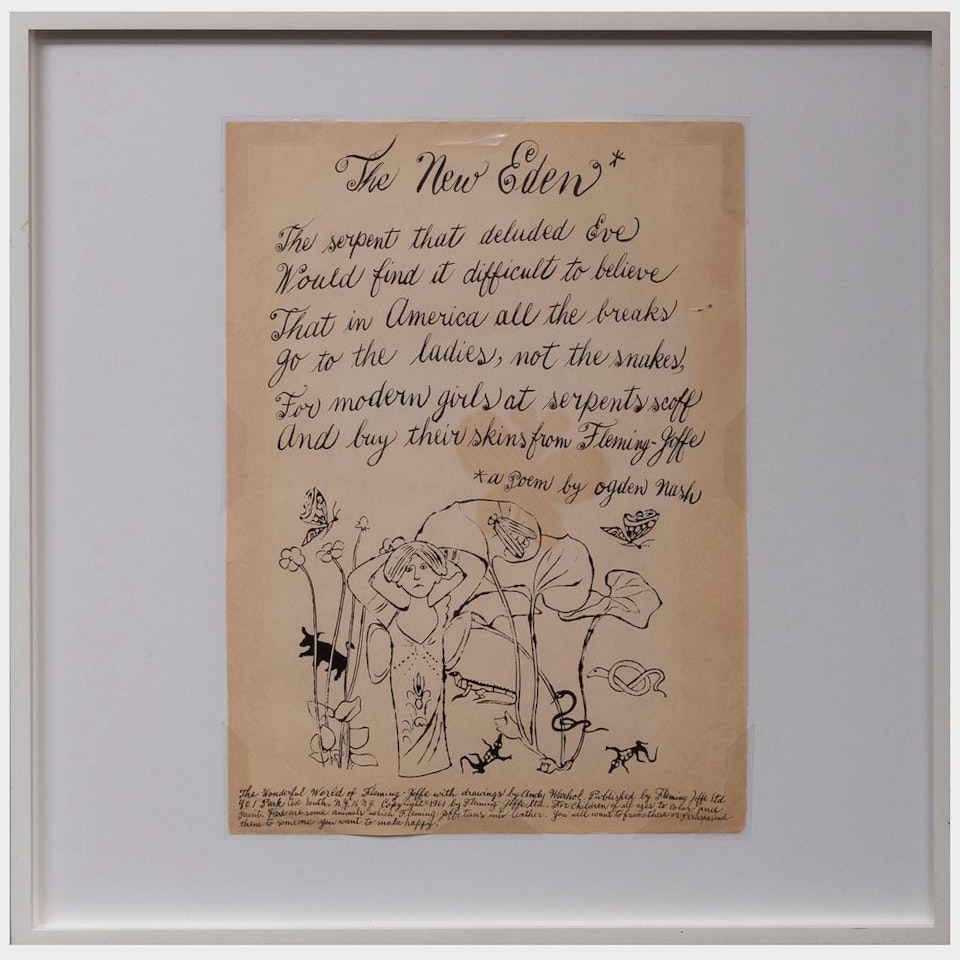 The New Eden*
The serpent that deluded Eve
Would find it difficult to believe
That in America all the breaks
Go to the ladies, not the snakes,
For modern girls at serpents scoff
And buy their skins from Fleming-Joffe
*a Poem by ogden Nash
The Wonderful World of Fleming-Joffe with drawings by Andy Warhol. Published by Fleming Joffe Ltd
401 Park Ave South, N.Y. 16 N.Y. Copyright 1961 by Fleming Joffe Ltd. For Children of all ages to Color and
Paint. Here are some animals which Fleming Joffe turns into leather. You will want to frame these or Perhaps send
them to someone you want to make happy.